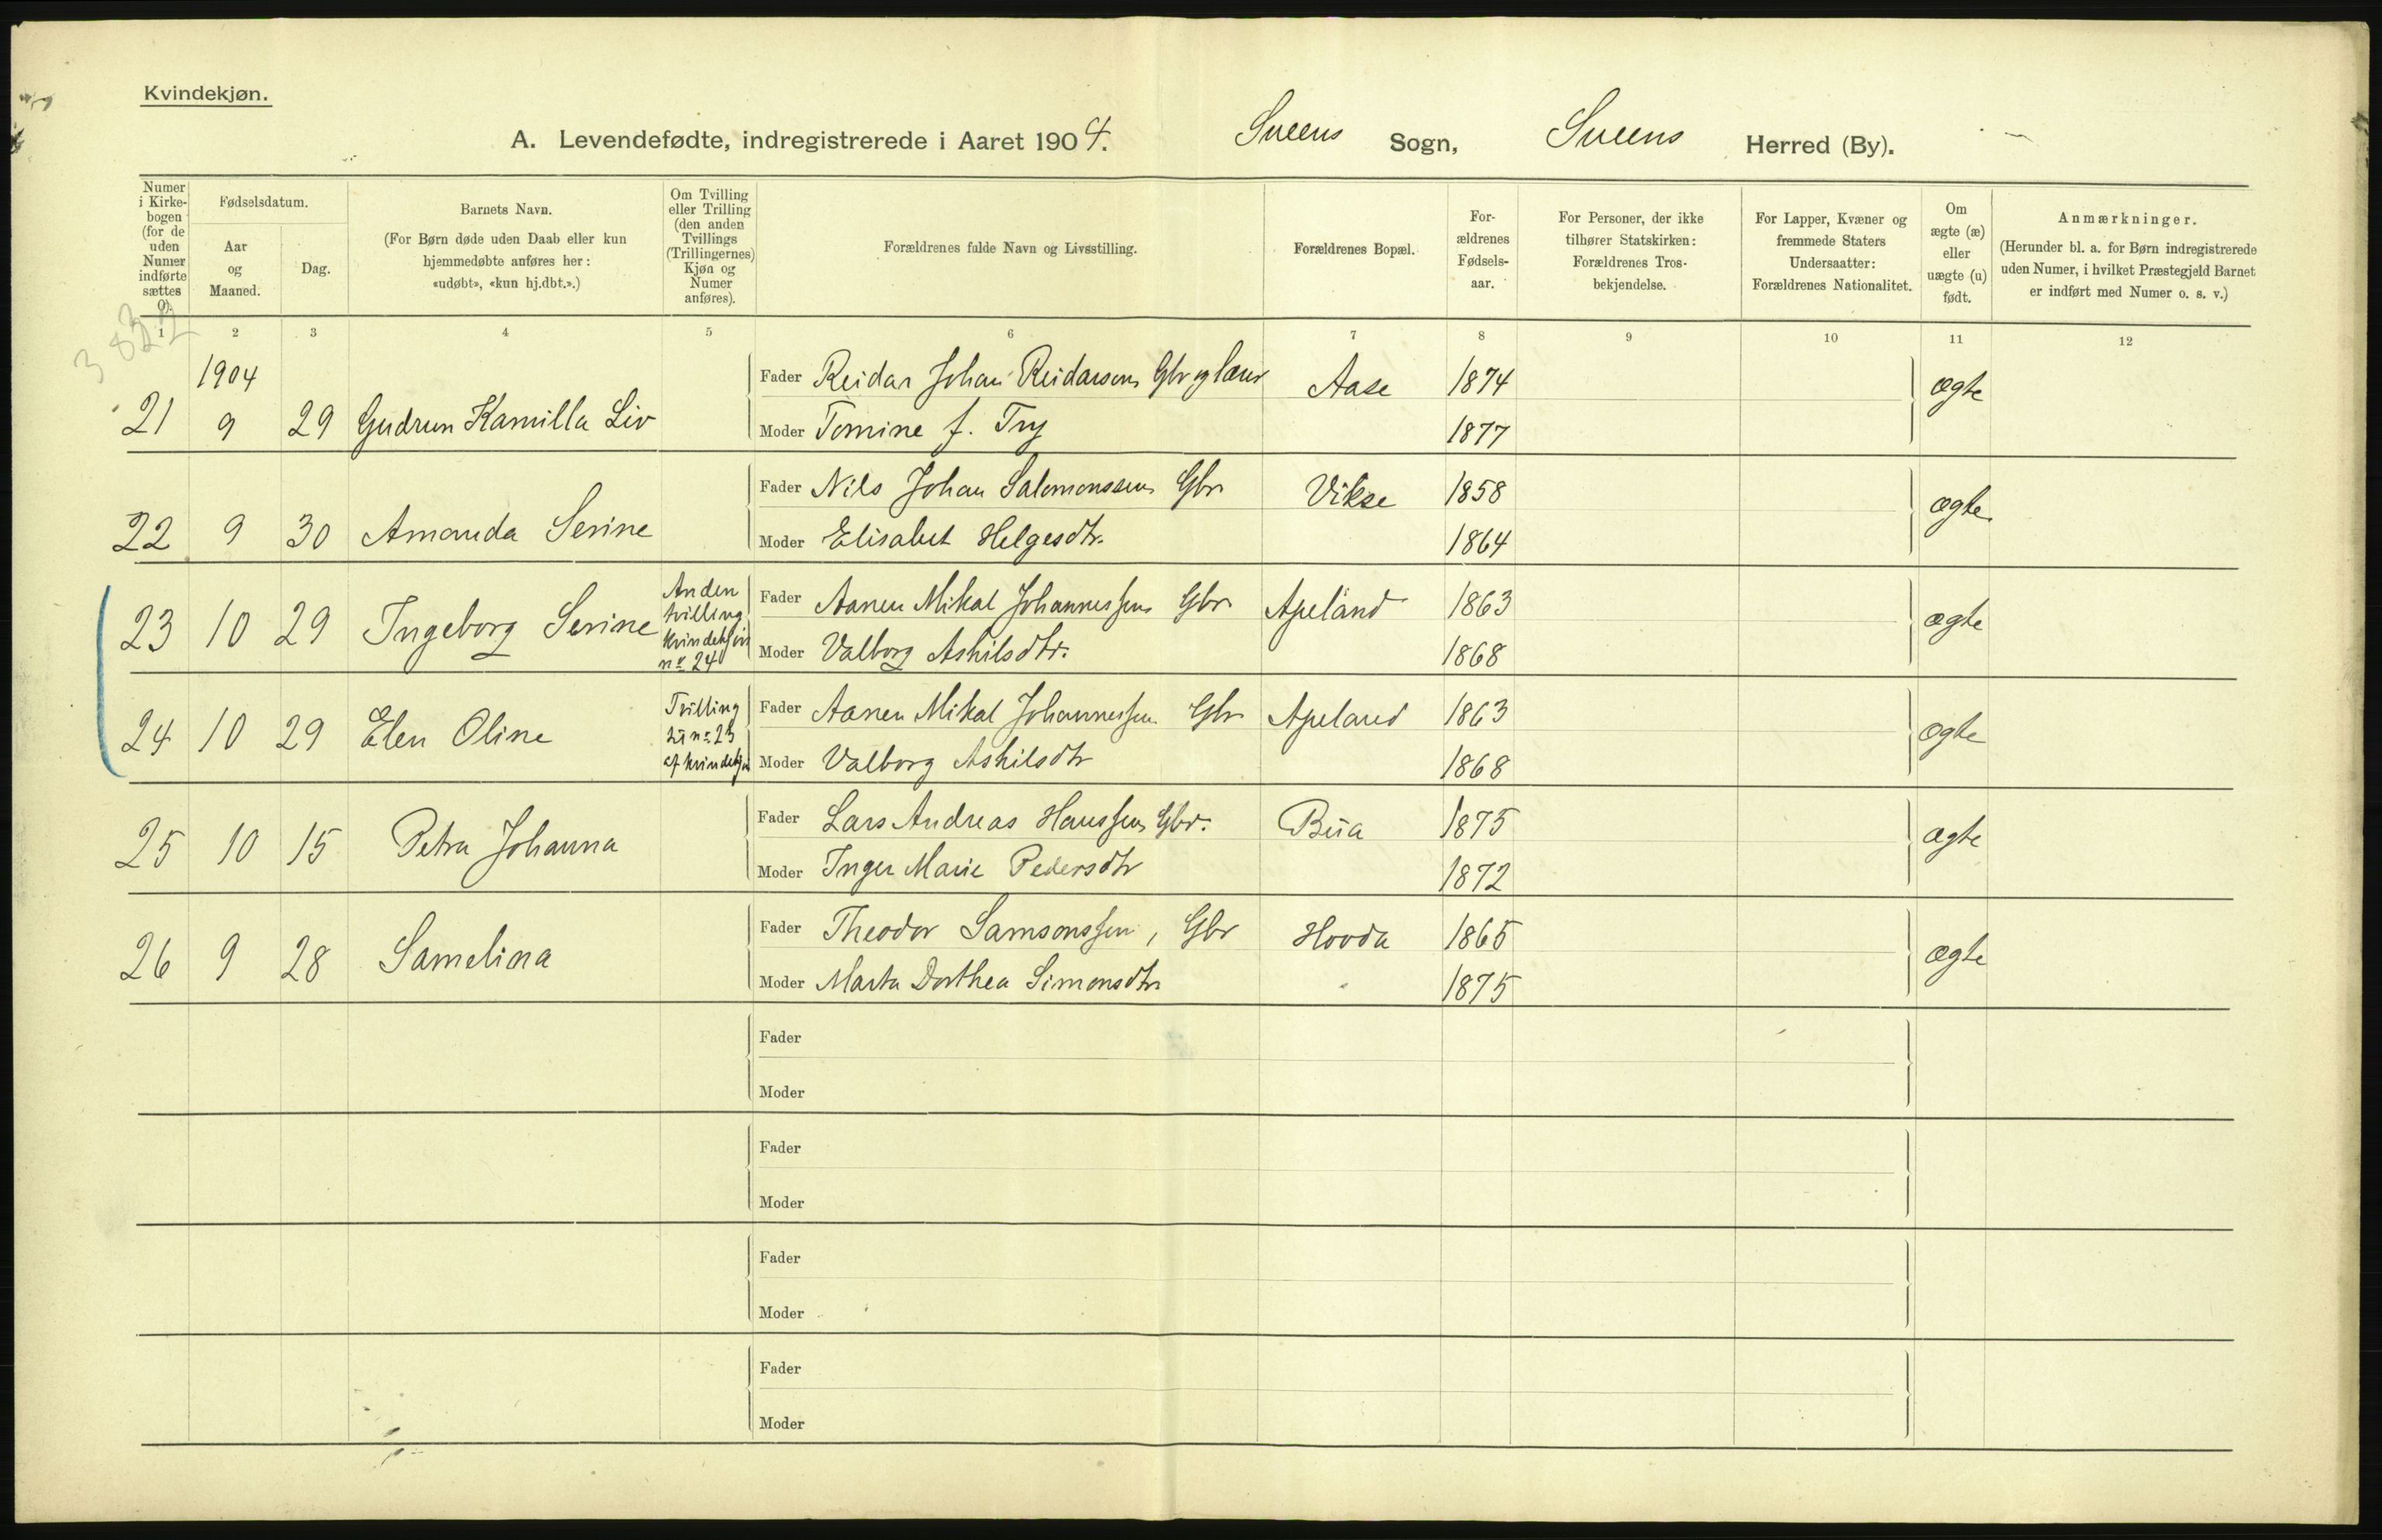 Kvindekjøn.
A. Levendefødte, indregistrerede i Aaret 1904. Sveens Sogn, Sveens Herred (By).
Numer i Kirkebogen (for de uden Numer indførte sættes 0).
Fødselsdatum.
Aar og Maaned.
Dag.
Barnets Navn.
(For Børn døde uden Daab eller kun
hjemmedøbte anføres her:
«udøbt», «kun hj.dbt.».)
Om Tvilling
eller Trilling
(den anden
Tvillings
(Trillingernes)
Kjøn og
Numer
anføres).
Forældrenes fulde Navn og Livsstilling.
Forældrenes Bopæl.
For-
ældrenes
Fødsels-
aar.
For Personer, der ikke
tilhører Statskirken:
Forældrenes Tros-
bekjendelse.
For Lapper, Kvæner og
fremmede Staters
Undersaatter:
Forældrenes Nationalitet.
Om
ægte (æ)
eller
uægte (u)
født.
Anmærkninger.
(Herunder bl. a. for Børn indregistrerede
uden Numer, i hvilket Præstegjeld Barnet
er indført med Numer o. s. v.)
1 2 3 4 5 6 7 8 9 10 11 12
1904
Fader Reidar Johan Reidarson Gbr og Aase 1874 ægte
21 9 29 Gudrun Kamilla Liv
Moder Tomine f. Try 1877
Fader Nils Johan Salomonssen Gbr Vikse 1858 ægte
22 9 30 Amanda Serine
Moder Elisabet Helgesdtr. 1864
Anden
tvilling
kvindekjøn
no 24
Fader Aanen Mikal Johannessen Gbr Apeland 1863 ægte
23 10 29 Ingeborg Serine
Moder Valborg Askilsdtr. 1868
Tvilling
til no 23
af kvindekjøn
Fader Aanen Mikal Johannessen Gbr Apeland 1863 ægte
24 10 29 Elen Oline
Moder Valborg Askilsdtr 1868
Fader Lars Andreas Hanssen Gbr. Bua 1875 ægte
25 10 15 Petra Johanna
Moder Inger Marie Pedersdtr 1872
Fader Theodor Samsonssen, Gbr Hovda 1865 ægte
26 9 28 Samelina
Moder Marta Dorthea Simonsdtr 1875
Fader
Moder
Fader
Moder
Fader
Moder
Fader
Moder